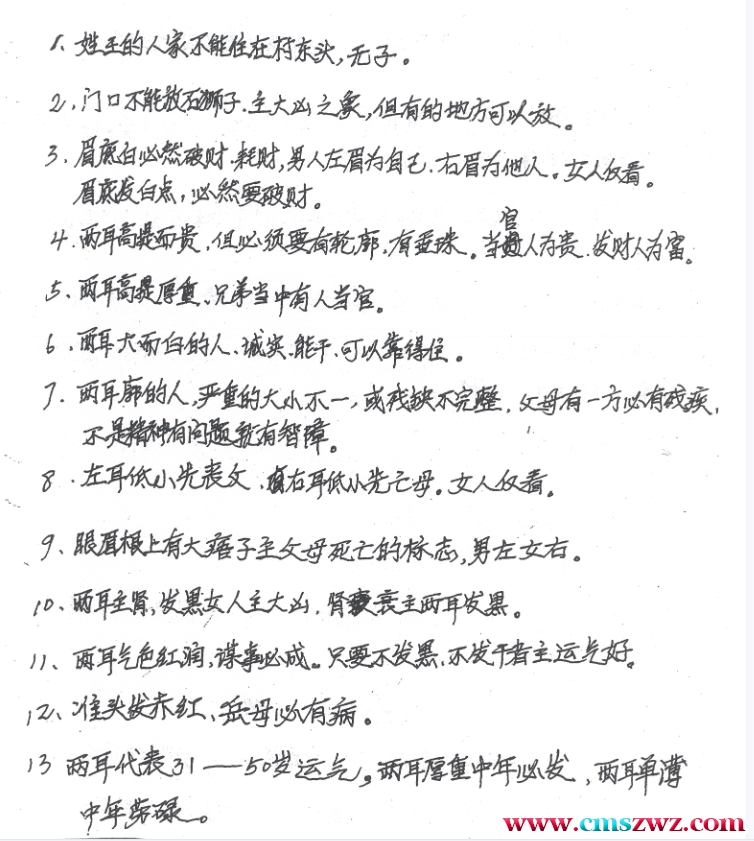 1、姓王的人家不能住在村东头,无子。
2、门口不能放石狮子.主大凶之象,但有的地方可以放。
3、眉底白必然破财.耗财,男人左眉为自己.右眉为他人。女人仅看。
眉底发白点,必然要破财。
官
4、两耳高提而贵,但必须要有轮廓,有垂珠。当人为贵.发财人为富。
5、两耳高提厚重、兄弟当中有人当官。
6、两耳大而白的人、诚实.能干、可以靠得住。
7、两耳廓的人,严重的大小不一,或残缺不完整,父母有一方必有残疾,
不是精神有问题就有智障。
8、左耳低小先丧父、右耳低小先亡母。女人仅看。
9、眼眉根上有大痦子主父母死亡的标志,男左女右。
10、两耳主肾,发黑女人主大凶,肾衰主两耳发黑。
11、两耳气色红润,谋事必成。只要不发黑.不发干者主运气好。
12、准头发赤红、岳母必有病。
13 两耳代表31——50岁运气。两耳厚重中年必发,两耳单薄
中年劳碌。
www.cmszwz.com